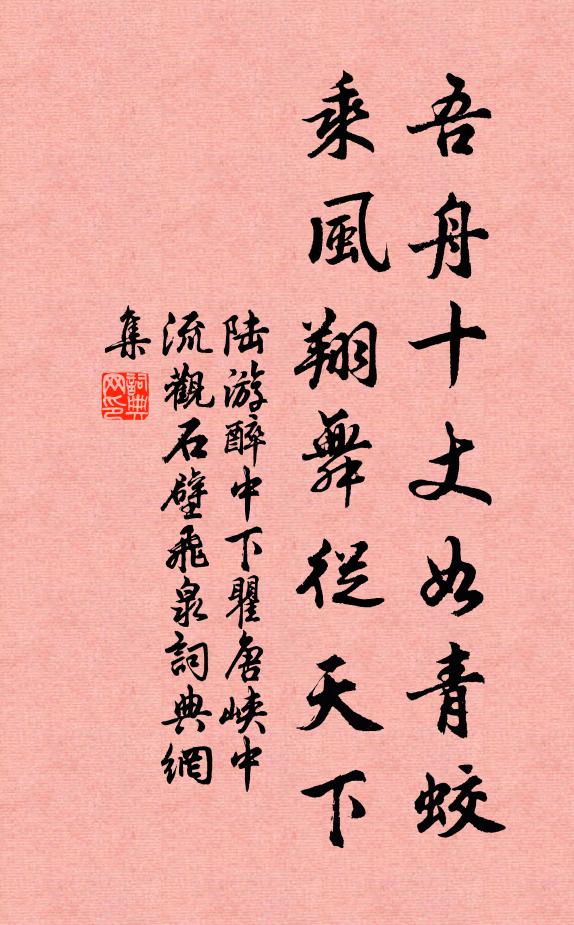 吾舟十丈如青蛟
乘風翔舞從天下
陆游醉中下瞿唐峽中
流觀石壁飛泉詞典網
集
詞典
网印